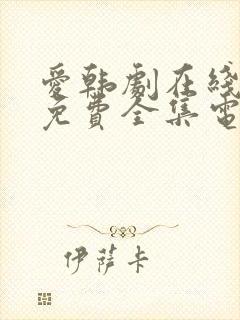 愛韩劇在綫
免費全集電
伊萨卡